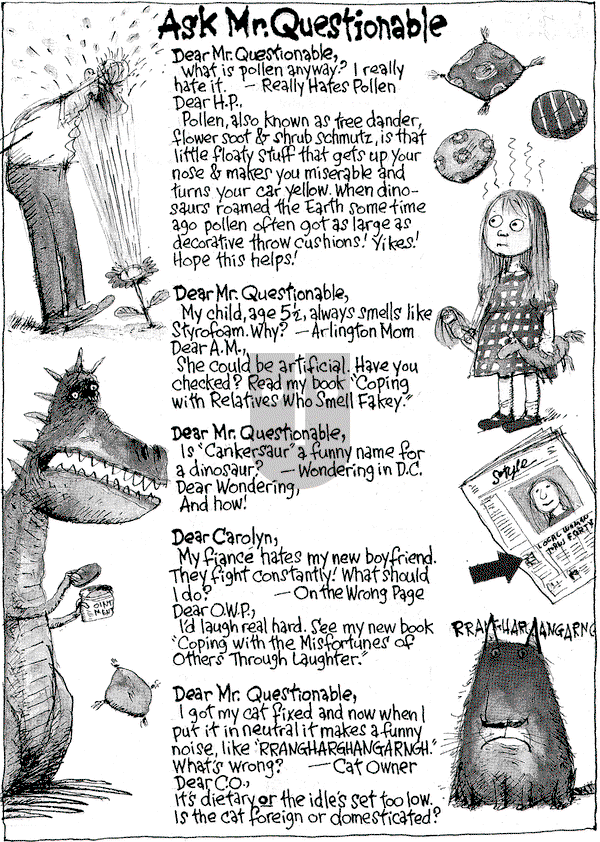 Ask Mr. Questionable
Dear Mr. Questionable,
What is pollen anyway? I really
hate it. — Really Hates Pollen
Dear H.P.,
Pollen, also known as tree dander,
flower soot & shrub schmutz, is that
little floaty stuff that gets up your
nose & makes you miserable and
turns your car yellow. When dino-
saurs roamed the Earth some time
ago pollen often got as large as
decorative throw cushions! Yikes!
Hope this helps!
Dear Mr. Questionable,
My child, age 5½, always smells like
Styrofoam. Why? — Arlington Mom
Dear A.M.,
She could be artificial. Have you
checked? Read my book "Coping
with Relatives Who Smell Fakey."
Dear Mr. Questionable,
Is "Cankersaur" a funny name for
a dinosaur? — Wondering in D.C.
Dear Wondering,
And how!
Dear Carolyn,
My fiance hates my new boyfriend.
They fight constantly! What should
I do? — On the Wrong Page
Dear O.W.P.,
I'd laugh real hard. See my new book
"Coping with the Misfortunes of
Others Through Laughter."
Dear Mr. Questionable,
I got my cat fixed and now when I
put it in neutral it makes a funny
noise, like "RRANGHARGHANGARNGH."
What's wrong? — Cat Owner
Dear C.O.,
It's dietary or the idle's set too low.
Is the cat foreign or domesticated?
OINT
MENT
Style
LOCAL WOMAN
NOW FORTY
U